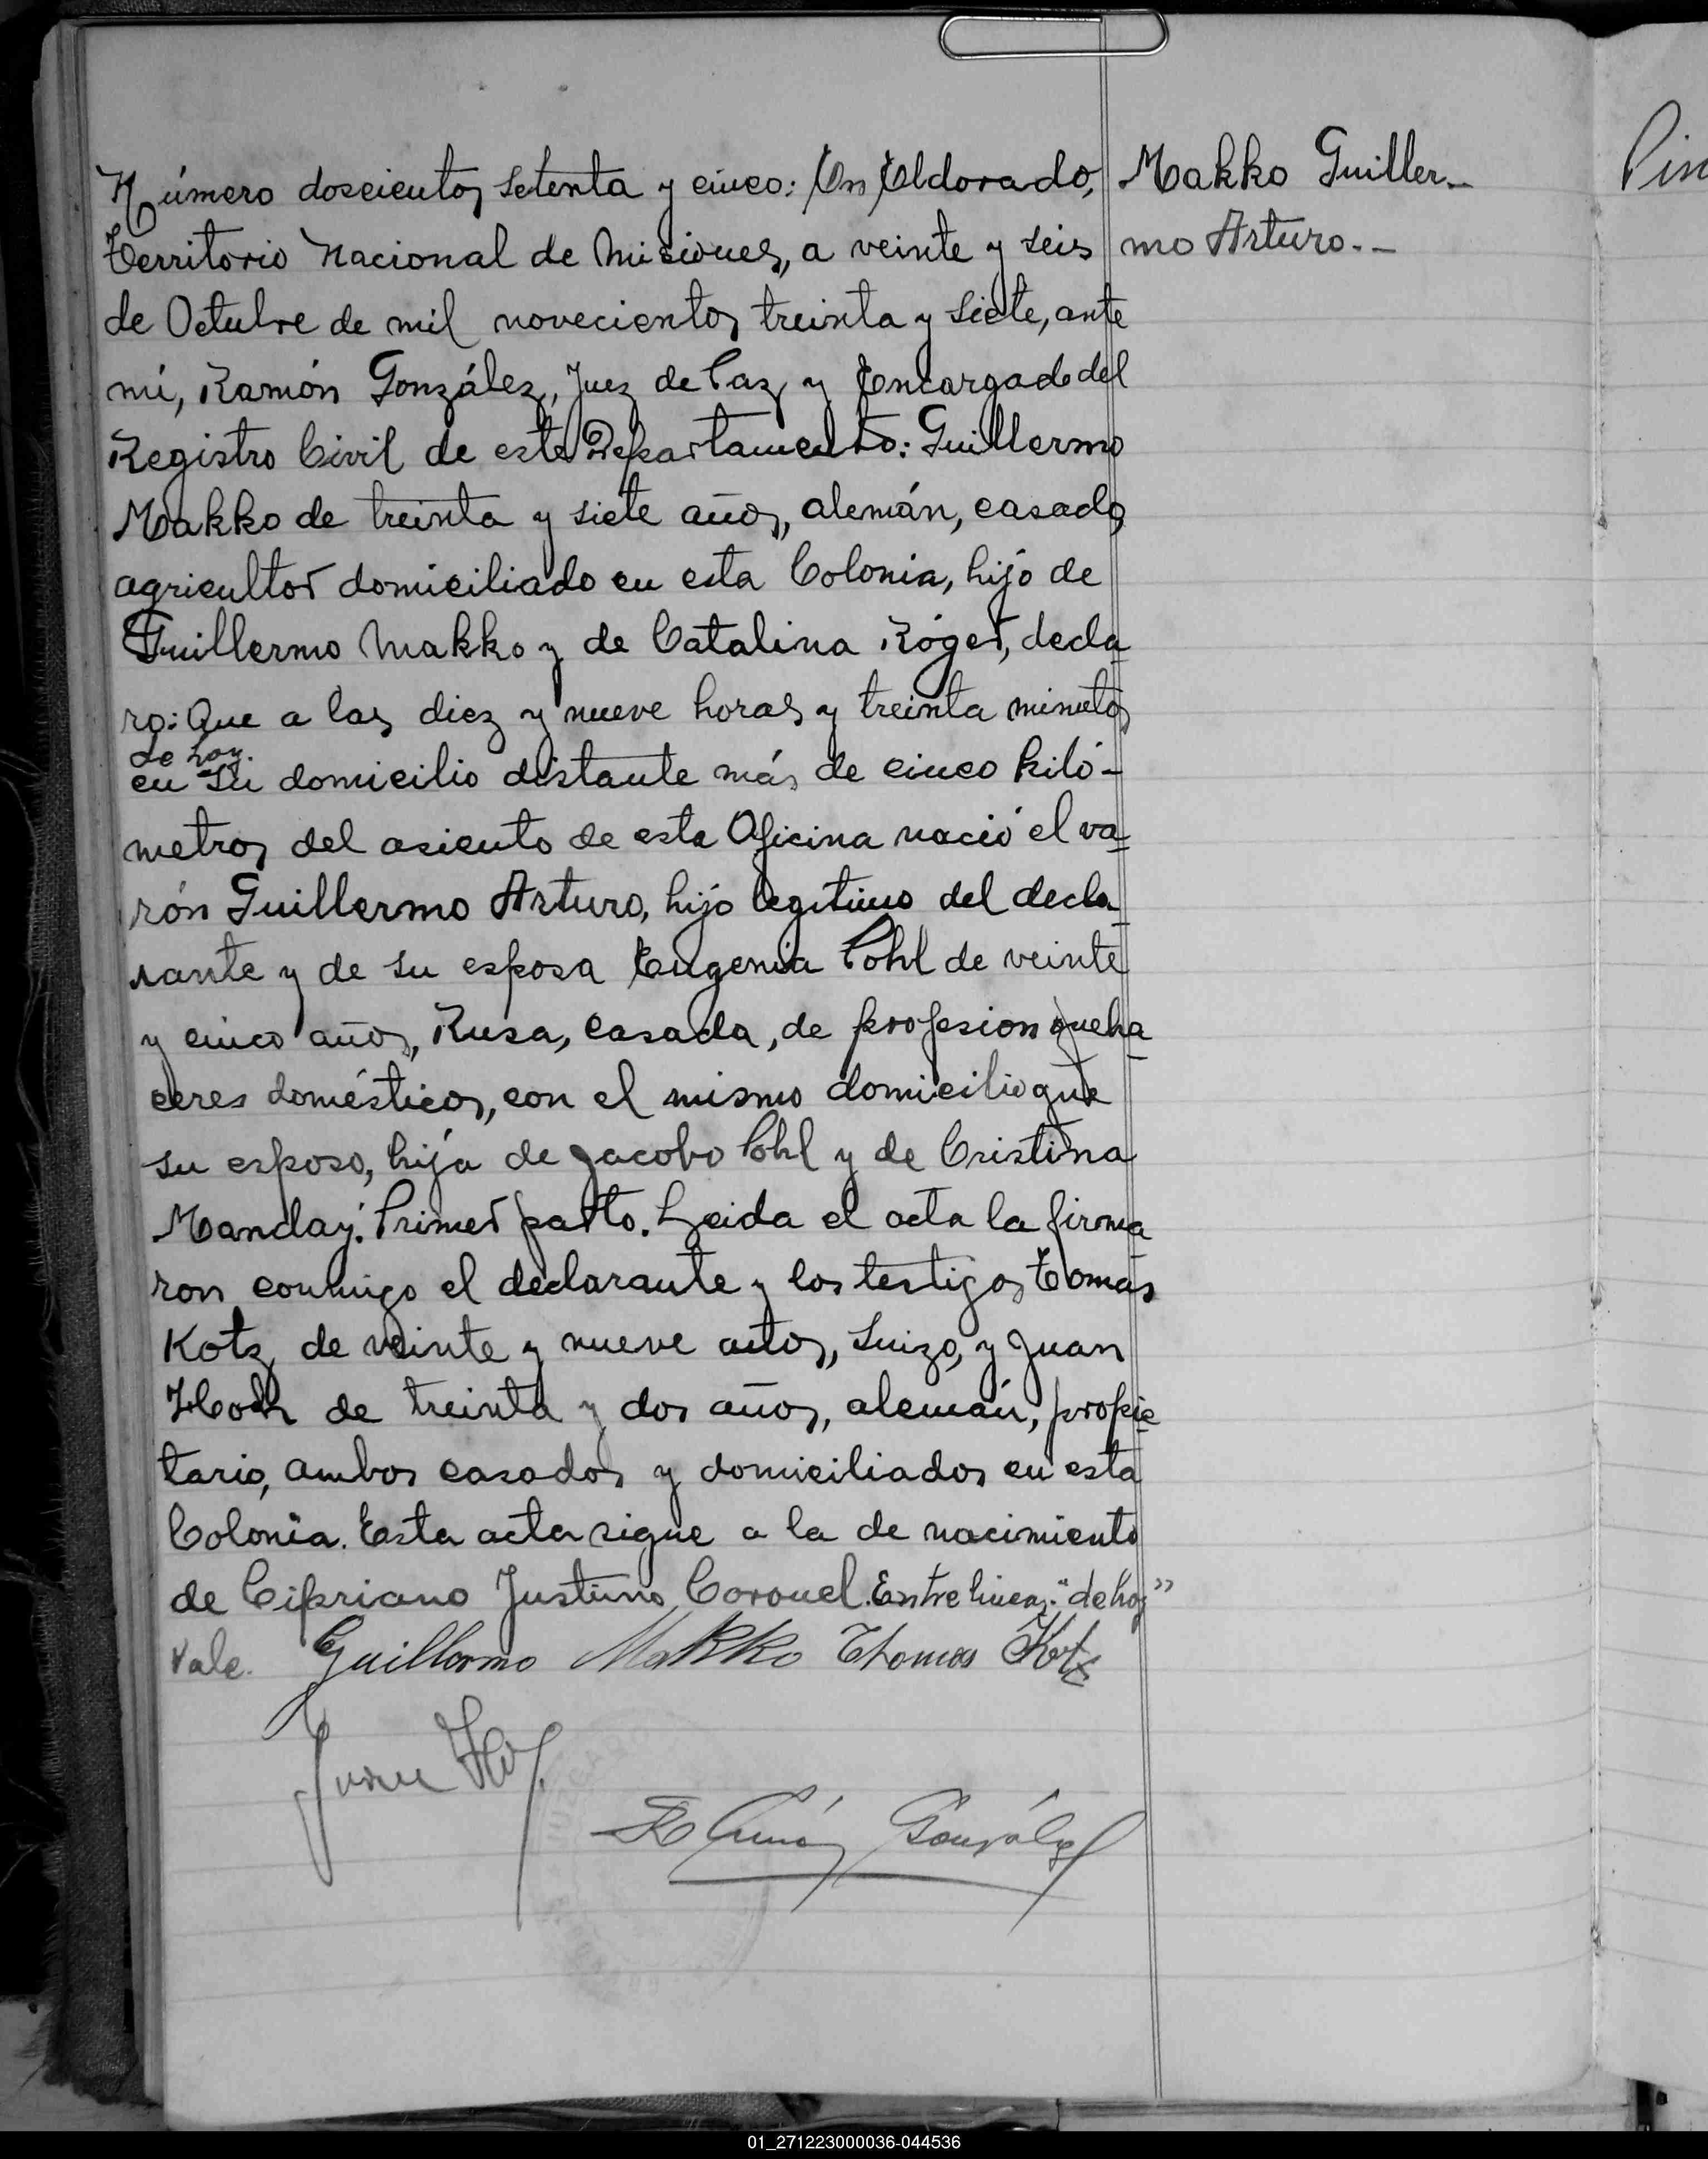 Número doscientos setenta y cinco: En Eldorado,
Territorio Nacional de Misiones, a veinte y seis
de Octubre de mil novecientos treinta y siete, ante
mí, Ramón González, Juez de Paz y Encargado del
Registro Civil de este Departamento: Guillermo
Makko de treinta y siete años, alemán, casado,
agricultor domiciliado en esta Colonia, hijo de
Guillermo Makko y de Catalina Róger, decla
ro: Que a las diez y nueve horas y treinta minutos
de hoy.
en su domicilio distante más de cinco kiló-
metros del asiento de esta Oficina nació el va
rón Guillermo Arturo, hijo legítimo del decla
rante y de su esposa Eugenia Pohl de veinte
y cinco años, Rusa, casada, de profesion queha
ceres domésticos, con el mismo domicilio que
su esposo, hija de Jacobo Pohl y de Cristina
Manday. Primer parto. Leida el acta la firma
ron conmigo el declarante y los testigos Tomas
Kotz de veinte y nueve años, suizo, y Juan
de treinta y dos años, alemán, propie
tario, ambos casados y domiciliados en esta
Colonia. Esta acta sigue a la de nacimiento
de Cipriano Justino Coronel. Entre lineas: "de hoy"
Vale. Guillermo Makko Thomas Kotz
Juan
Ramón González
Makko Guiller-
mo Arturo.-
01_271223000036-044536